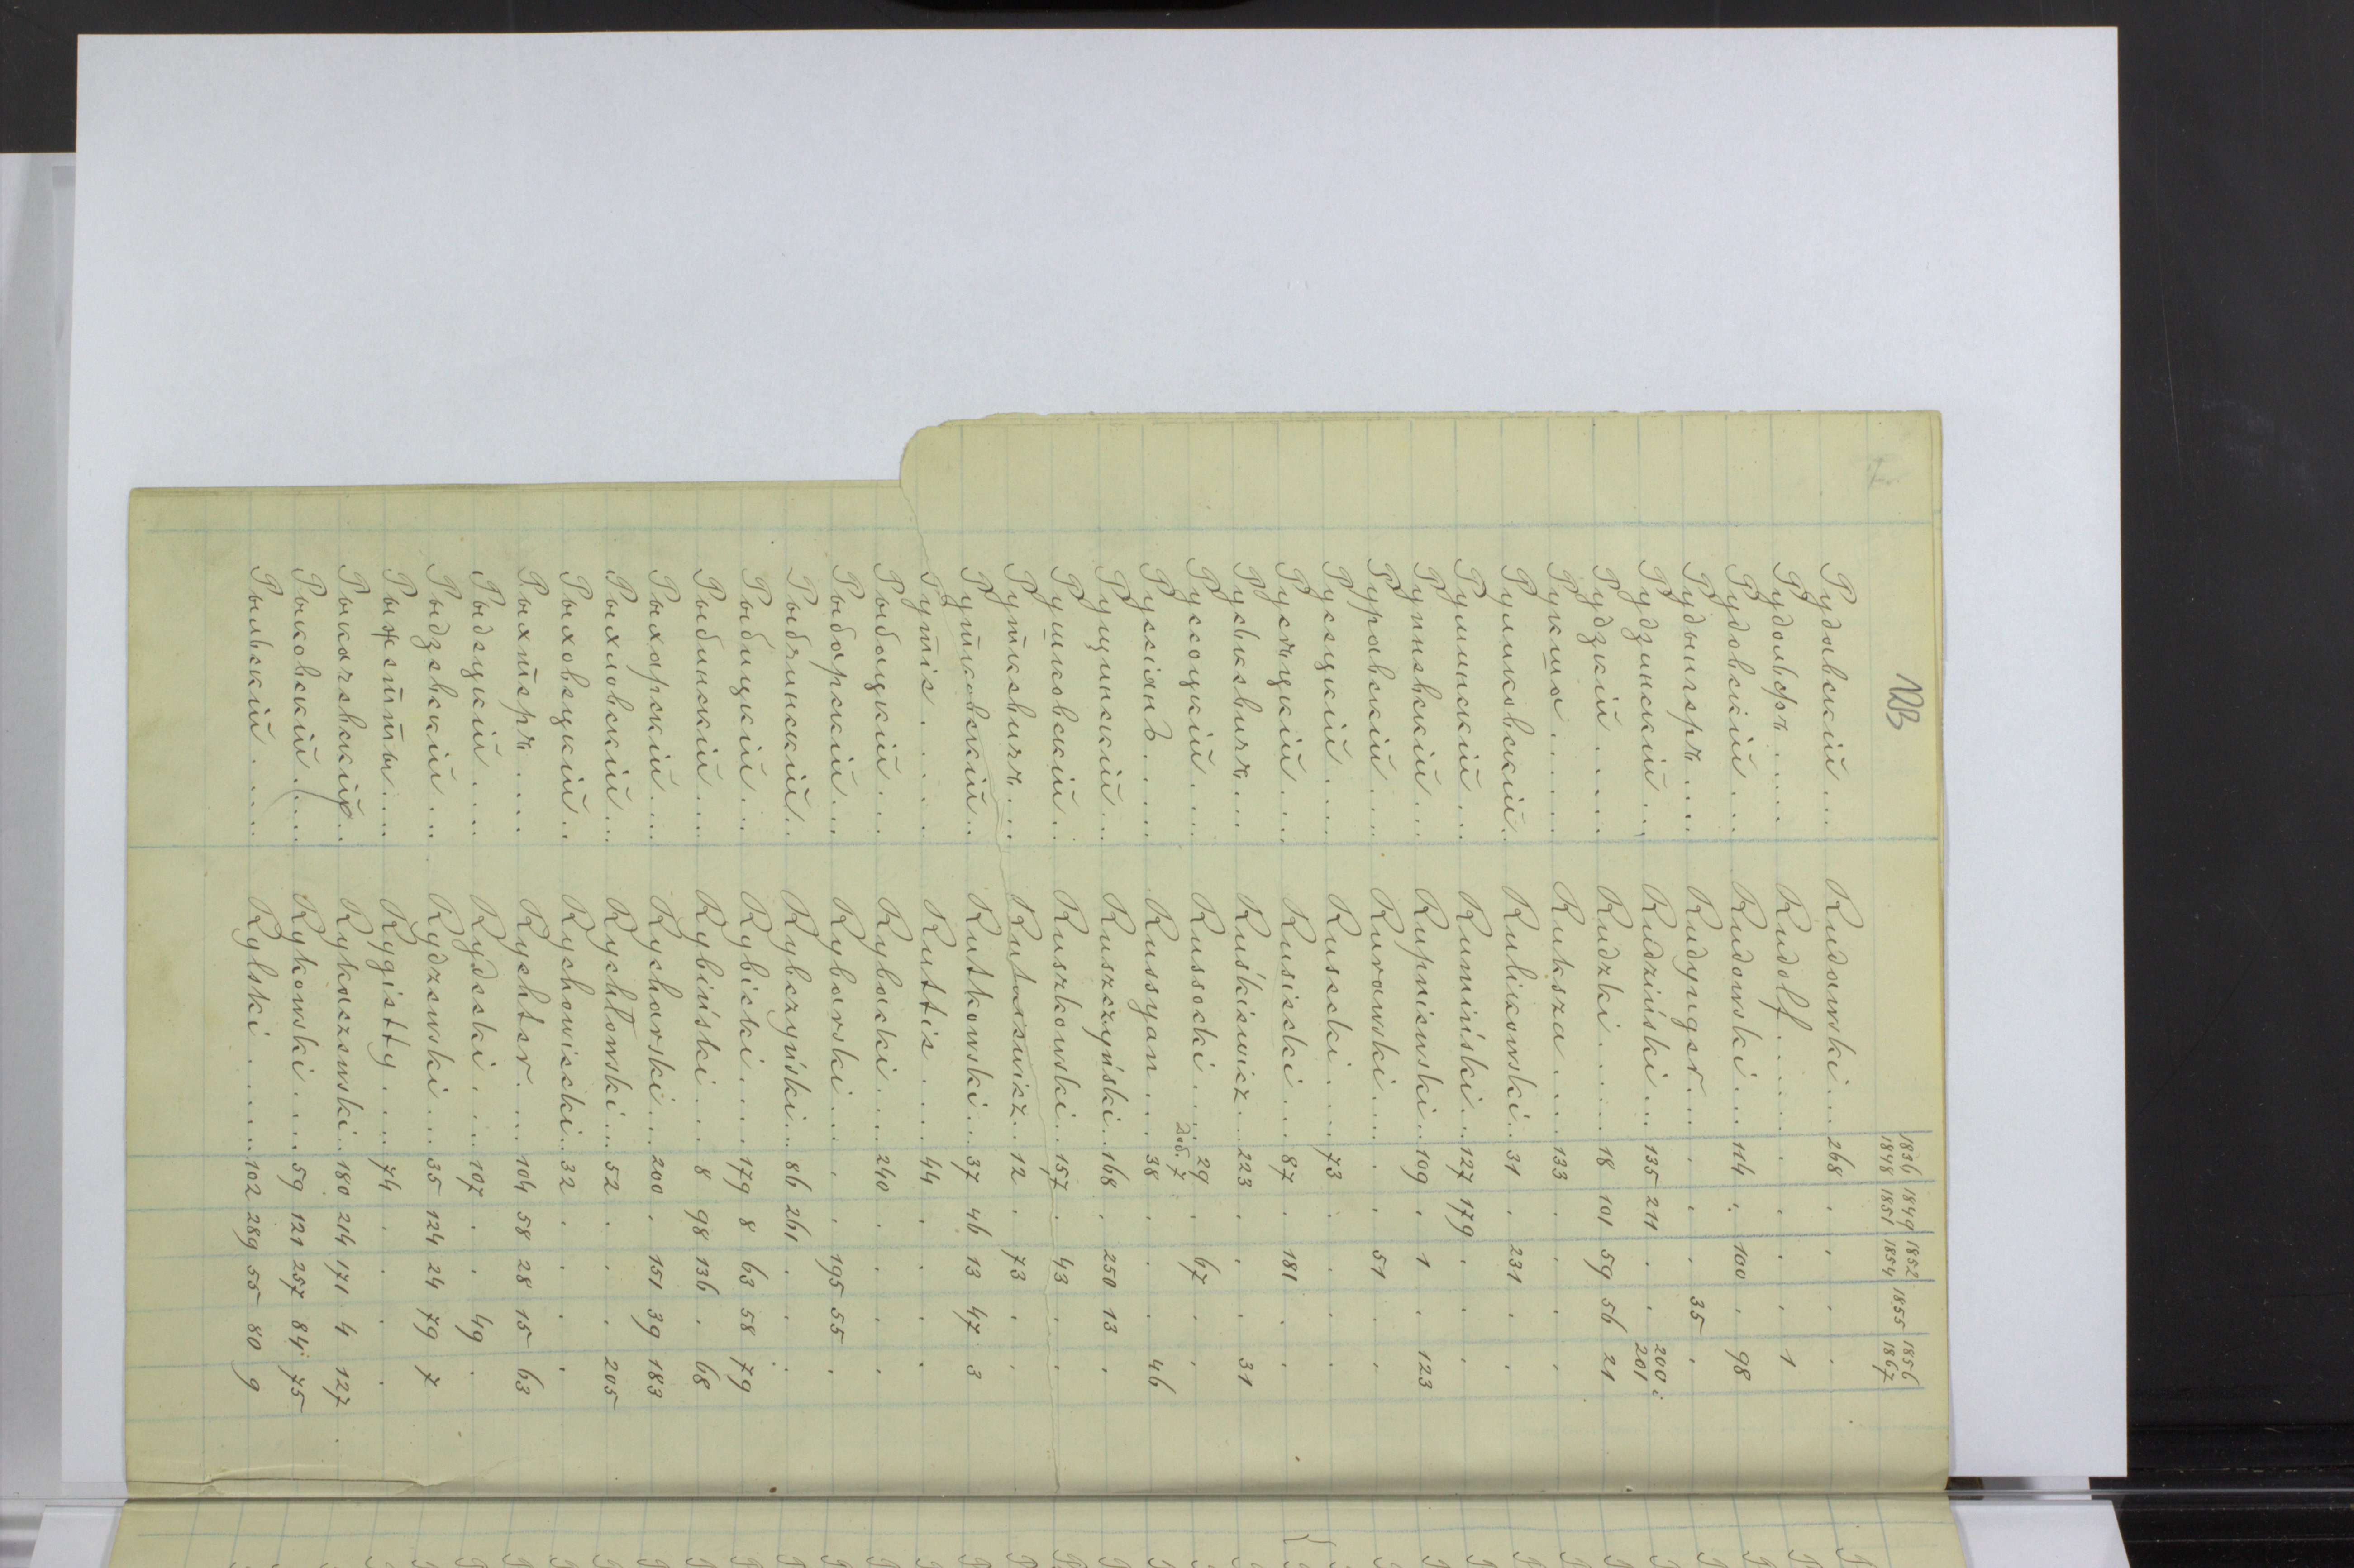 NB
1836 1849 1852 1855 1856
1848 1851 1854 1867
Рудавскій... Rudawski... 268 . . . .
Рудольфъ.... Rudolf...... . . . . 1
Рудовскій... Rudowski... 114 . 100 . 98
Рудынгеръ.... Rudynger... . . . 35 .
Рудзинскій... Rudziński... 135 211 . . 200 i 201
Рудзкій.... Rudzki..... 18 101 59 56 21
Рукша..... Ruksza.... 133 . . . .
Руликовскій.. Rulikowski.. 31 . 231 . .
Руминскій... Rumiński... 127 179 . . .
Рупневскій... Rupniewski.. 109 . 1 . 123
Руравскій... Rurawski... . . 51 . .
Русецкій.... Rusecki.... 73 . . . .
Русѣцкій... Rusiecki... 87 . 181 . .
Руськевичъ... Ruśkiewicz... 223 . . . 31
Руссоцкій.... Russocki.... 29 . 67 . .
Дод. 7.
Руссіянъ..... Russyan... 38 . . . 46
Рущинскій... Ruszczyński.. 168 . 250 13 .
Рушковскій.. Ruszkowski.. 157 . 43 . .
Руткевичъ.... Rutasewicz.. 12 . 73 . .
Рутковскій... Rutkowski... 37 46 13 47 3
Руттіе..... Ruttie.... 44 . . . .
Рыбацкій... Rybacki.... 240 . . . .
Рыбарскій... Rybarski... . . 195 55 .
Рыбчинскій... Rybczyński... 86 261 . . .
Рыбицкій... Rybicki.... 179 8 63 58 79
Рыбинскій... Rybiński... 8 98 136 . 68
Рыхарскій... Rycharski... 200 . 151 39 183
Рыхловскій... Rychłowski... 52 . . . 205
Рыховецкій.. Rychowiecki.. 32 . . . .
Рыхтеръ.... Rychter.... 104 58 28 15 63
Рыдецкій.... Rydecki.... 107 . . 49 .
Рыдзевскій... Rydzewski... 35 124 24 79 7
Рыгетты.... Rygietty.... 74 . . . .
Рыкачевскій.. Rykaczewski.. 180 214 171 4 127
Рыковскій.... Rykowski.... 59 121 257 84 75
Рыльскій.... Rylski..... 102 289 55 80 9